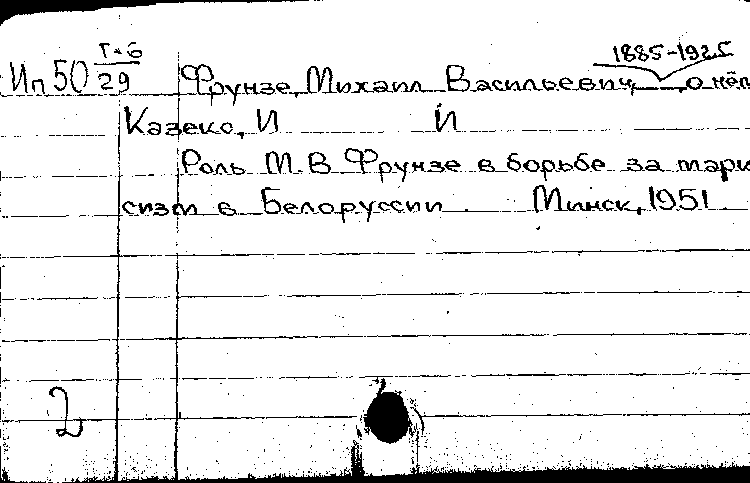 1885-1925
Ип 50 Т-6/29 Фрунзе, Михаил Васильевич, о нём
Казеко, И И
Роль М. В Фрунзе в борьбе за марк
сизм в Белоруссии. Минск, 1951
2